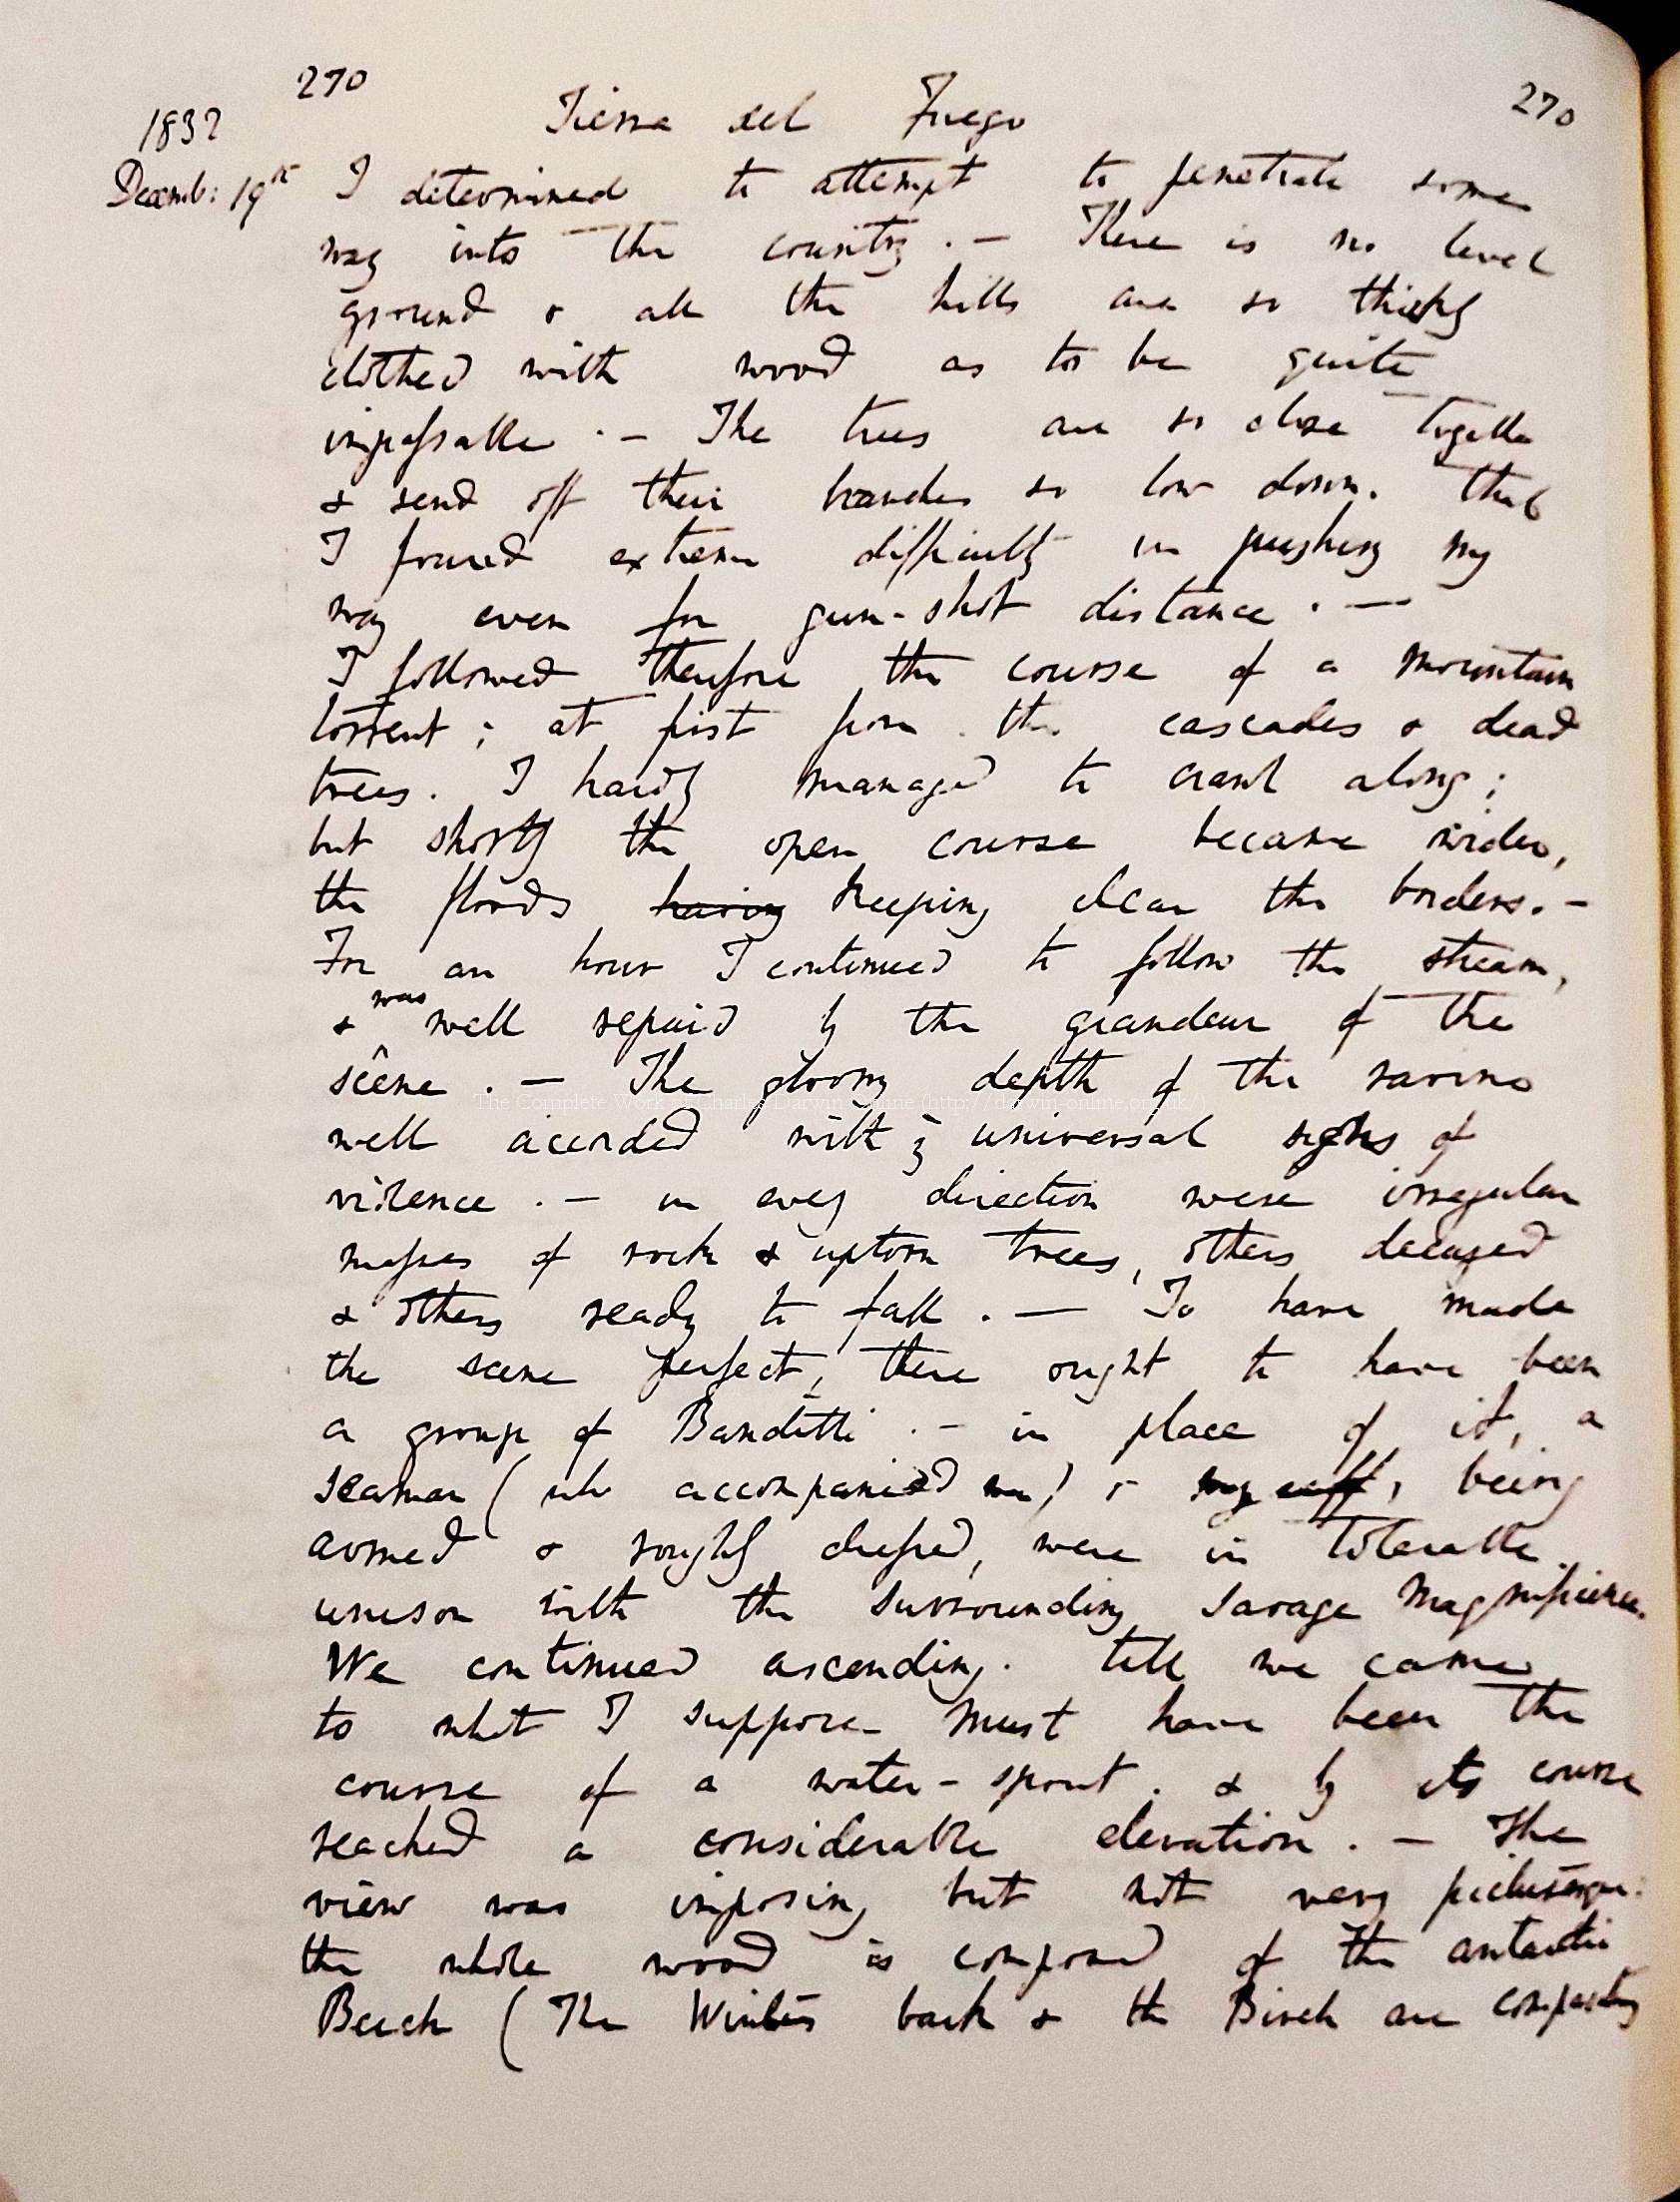 270
270
1832
Tierra del Fuego
Decemb: 19th I determined to attempt to penetrate some
way into the country. — There is no level
ground & all the hills are so thickly
clothed with wood as to be quite
impassable. — The trees are so close together
& send off their branches so low down. that
I found extreme difficulty in pushing my
way even for gun-shot distance. —
I followed therefore the course of a mountain
torrent; at first from the cascades & dead
trees. I hardly managed to crawl along;
but shortly the open course became wider,
the floods having keeping clear the borders. —
For an hour I continued to follow the stream,
was
& well repaid by the grandeur of the
scene. — The gloomy depth of the ravine
The Complete Work of Charles Darwin Online (http://darwin-online.org.uk/)
well accorded with ye universal signs of
violence. — in every direction were irregular
masses of rock & uptorn trees, others decayed
& others ready to fall. — To have made
the scene perfect, there ought to have been
a group of Banditti. — in place of it, a
seaman (who accompanied me) & myself, being
armed & roughly dressed, were in tolerable
unison with the surrounding savage Magnificence.
We continued ascending. till we came
to what I suppose must have been the
course of a water-spout. & by its course
reached a considerable elevation. — The
view was imposing but not very picturesque:
the whole wood is composed of the antarctic
Beech (The Winters bark & the Birch are comparatively